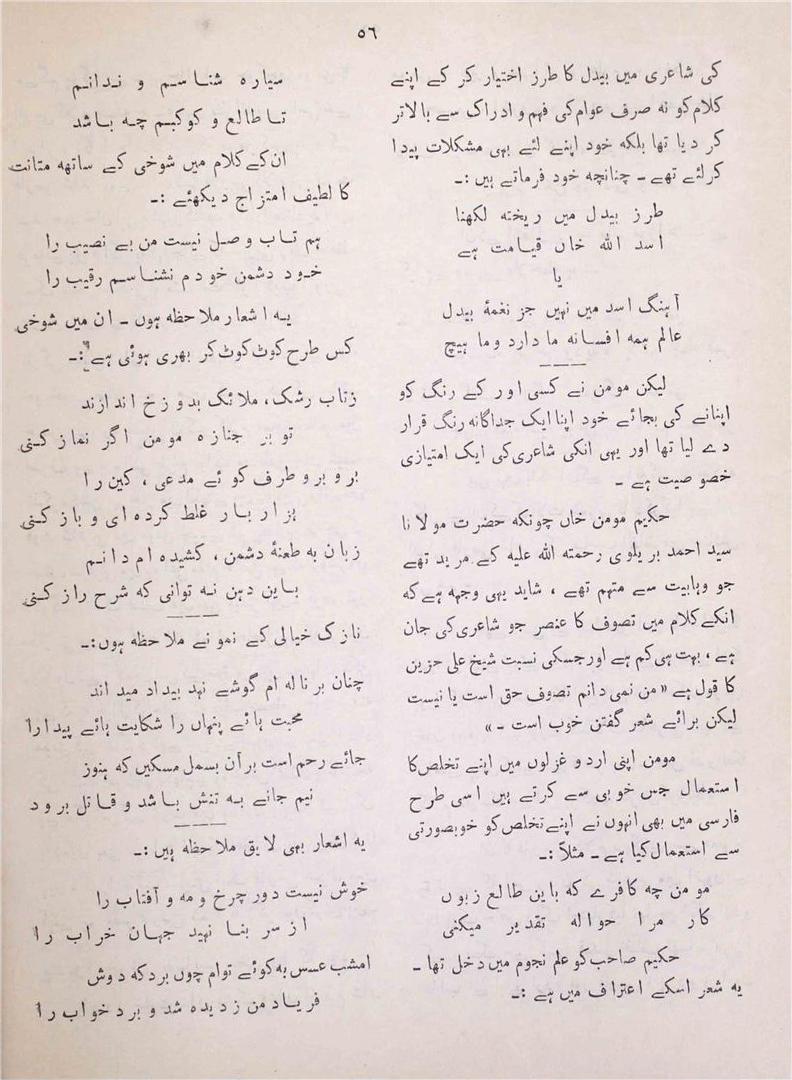 ٥٦
کی شاعری میں بیدل کا طرز اختیار کر کے اپنے
کلام کو نہ صرف عوام کی فہم و ادراک سے بالاتر
کر دیا تھا بلکہ خود اپنے لئے بھی مشکلات پیدا
کرلئے تھے ـ چنانچہ خود فرماتے ہیں :ـ
طرز بیدل میں ریختہ لکھنا
اسد اللہ خاں قیامت ہے
یا
آہنگ اسد میں نہیں جز نغمۂ بیدل
عالم ہمہ افسانہ ما دارد و ما ہیچ
لیکن مومن نے کسی اور کے رنگ کو
اپنانے کی بجائے خود اپنا ایک جداگانہ رنگ قرار
دے لیا تھا اور یہی انکی شاعری کی ایک امتیازی
خصوصیت ہے ـ
حکیم مومن خاں چونکہ حضرت مولانا
سید احمد بریلوی رحمتہ اللہ علیہ کے مرید تھے
جو وہابیت سے متہم تھے ، شاید یہی وجہہ ہے کہ
انکے کلام میں تصوف کا عنصر جو شاعری کی جان
ہے ، بہت ہی کم ہے اور جسکی نسبت شیخ علی حزین
کا قول ہے «من نمی دانم تصوف حق است یا نیست
لیکن برائے شعر گفتن خوب است ـ»
مومن اپنی اردو غزلوں میں اپنے تخلص کا
استعمال جس خوبی سے کرتے ہیں اسی طرح
فارسی میں بھی انہوں نے اپنے تخلص کو خوبصورتی
سے استعمال کیا ہے ـ مثلاً :ـ
مومن چہ کافرے کہ باین طالع زبوں
کار مرا حوالہ تقدیر میکنی
حکیم صاحب کو علم نجوم میں دخل تھا ـ
یہ شعر اسکے اعتراف میں ہے :ـ
سیارہ شناسم و ندانم
تا طالع و کوکبم چہ باشد
ان کے کلام میں شوخی کے ساتھ متانت
کا لطیف امتزاج دیکھئے :ـ
ہم تاب وصل نیست من بے نصیب را
خود دشمن خودم نشناسم رقیب را
یہ اشعار ملاحظہ ہوں ـ ان میں شوخی
کس طرح کوٹ کوٹ کر بھری ہوئی ہے :ـ
زتاب رشک، ملائک بدوزخ اندازند
تو بر جنازہ مومن اگر نماز کنی
برو برو طرف کوئے مدعی ، کین را
ہزار بار غلط کردہ ای و باز کنی
زبان بہ طعنۂ دشمن ، کشیدہ ام دانم
باین دہن نہ توانی کہ شرح راز کنی
نازک خیالی کے نمونے ملاحظہ ہوں:ـ
چنان بر نالہ ام گوشے نہد بیداد میداند
محبت ہائے پنہاں را شکایت ہائے پیدا را
جائے رحم است برآن بسمل مسکیں کہ ہنوز
نیم جانے بہ تنش باشد و قاتل برود
یہ اشعار بھی لایق ملاحظہ ہیں :ـ
خوش نیست دور چرخ و مہ و آفتاب را
از سر بنا نہید جہان خراب را
امشب عسس بہ کوئے توام چوں برد کہ دوش
فریاد من ز دیدہ شد و برد خواب را